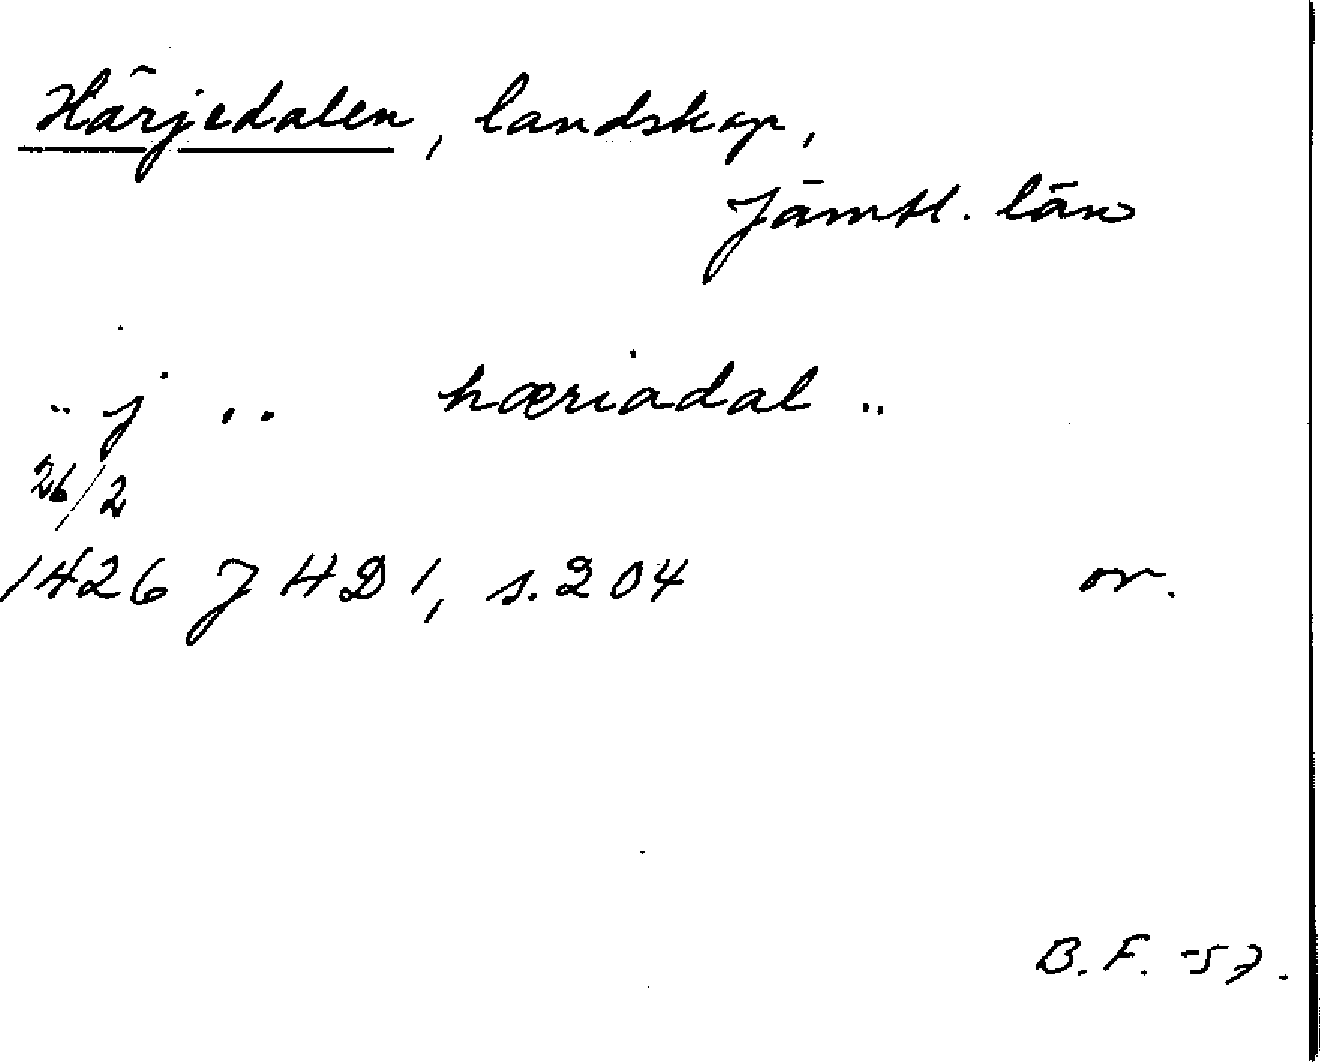 Härjedalen, landskap,
Jämtl. län
.. j .. hæriadal ..
26/2
1426 JHD 1, s. 204 or.
B.F. -57.